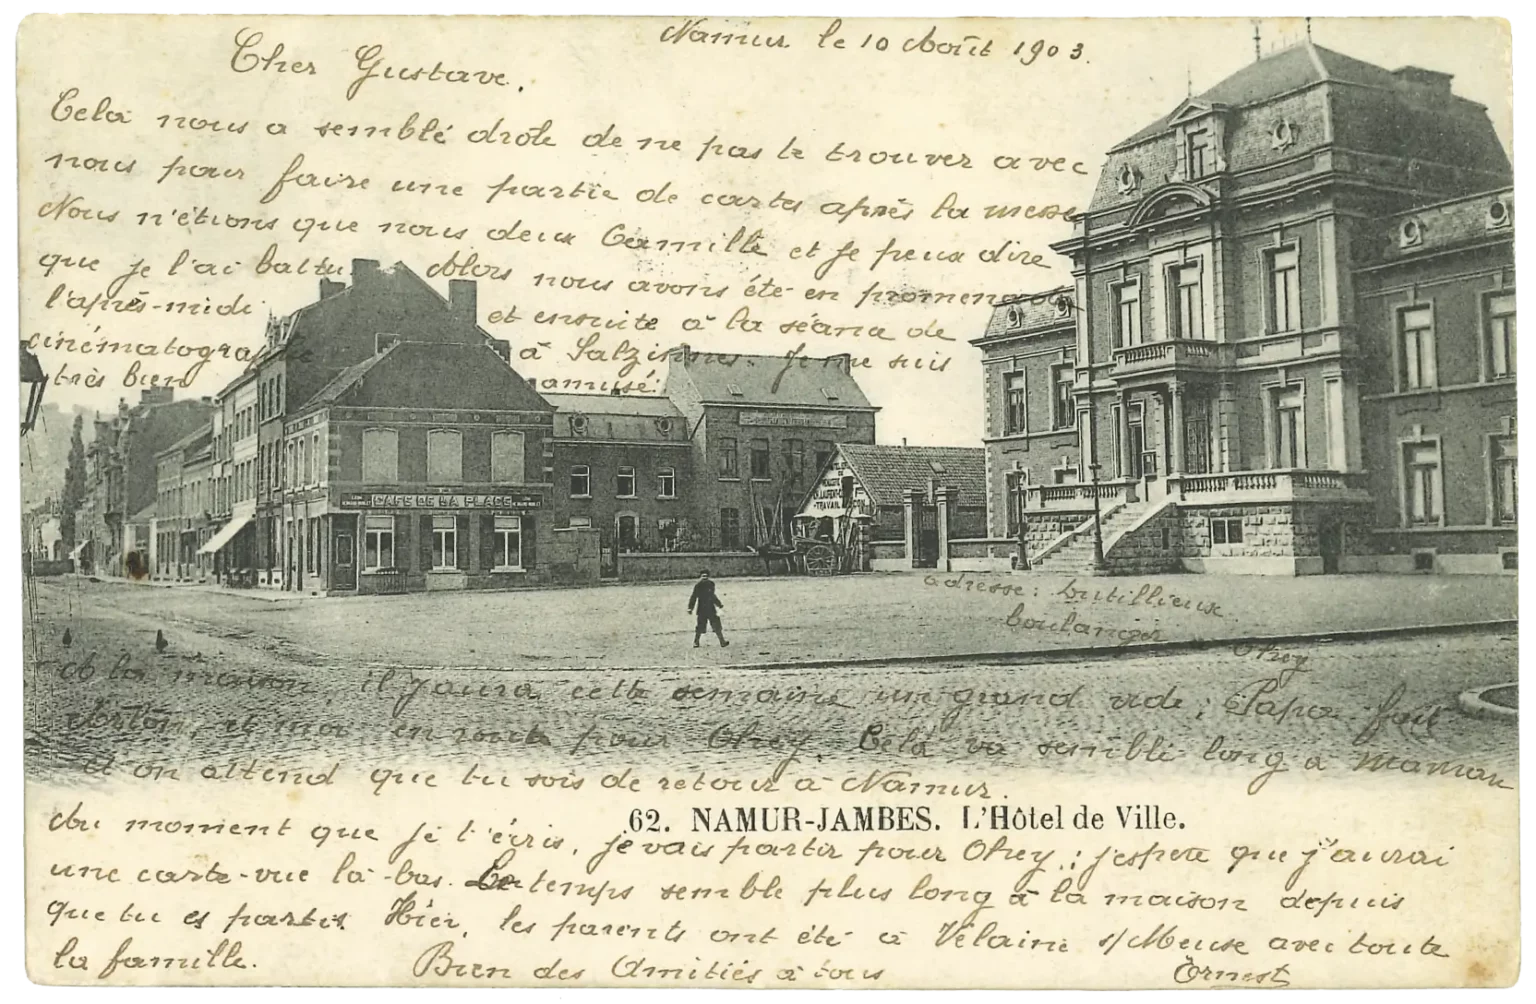 Namur le 10 Août 1903.
Cher Gustave,
Cela nous a semblé drôle de ne pas te trouver avec
nous pour faire une partie de cartes après la messe
Nous n'étions que nous deux Camille et je peux dire
que je l'ai battu. Alors nous avons été en promenade
l'après-midi et ensuite à la séance de
cinématographe à Salzinnes. Je me suis
très bien amusé.
CAFÉ DE LA PLACE
TRAVAIL
adresse: Dutillieux
boulanger
Ohey
A la maison, il y aura cette semaine un grand vide; Papa fait
et moi en route pour Ohey. Celà va semblé long à maman
et on attend que tu sois de retour à Namur.
62. NAMUR-JAMBES. L'Hôtel de Ville.
Au moment que je t'écris, je vais partir pour Ohey; j'espère que j'aurai
une carte-vue là-bas. Le temps semble plus long à la maison depuis
que tu es partis. Hier, les parents ont été à Vélaine s/Meuse avec toute
la famille. Bien des Amitiés à tous
Ernest